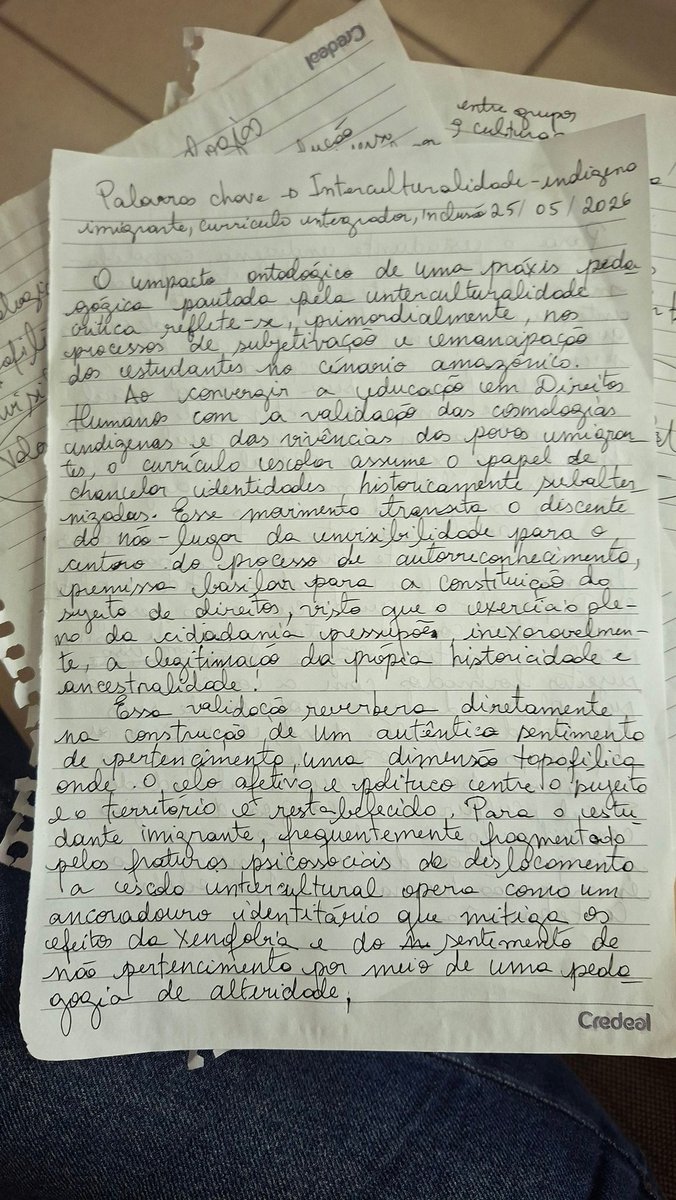 Credeal
entre grupos
e cultura
Palavras chave → Interculturalidade - indígena
imigrante, currículo integrador, inclusão 25/05/2026
O impacto ontológico de uma práxis peda-
gógica pautada pela interculturalidade
crítica reflete-se, primordialmente, nos
processos de subjetivação e emancipação
dos estudantes no cenário amazônico.
Ao convergir a educação em Direitos
Humanos com a validação das cosmologias
indígenas e das vivências dos povos imigran-
tes, o currículo escolar assume o papel de
chancelar identidades historicamente subalter-
nizadas. Esse movimento transita o discente
do não-lugar da invisibilidade para o
centro do processo de autorreconhecimento,
premissa basilar para a constituição do
sujeito de direitos, visto que o exercício ple-
no da cidadania pressupõe, inexoravelmen-
te, a legitimação da própia historicidade e
ancestralidade!
Essa validação reverbera diretamente
na construção de um autêntico sentimento
de pertencimento, uma dimensão topofílica
onde o elo afetivo e político entre o sujeito
e o território é restabelecido. Para o estu-
dante imigrante, frequentemente fragmentado
pelas fraturas psicossociais do deslocamento
a escola intercultural opera como um
ancoradouro identitário que mitiga os
efeitos da xenofobia e do sentimento de
não pertencimento por meio de uma peda-
gogia de alteridade,
Credeal